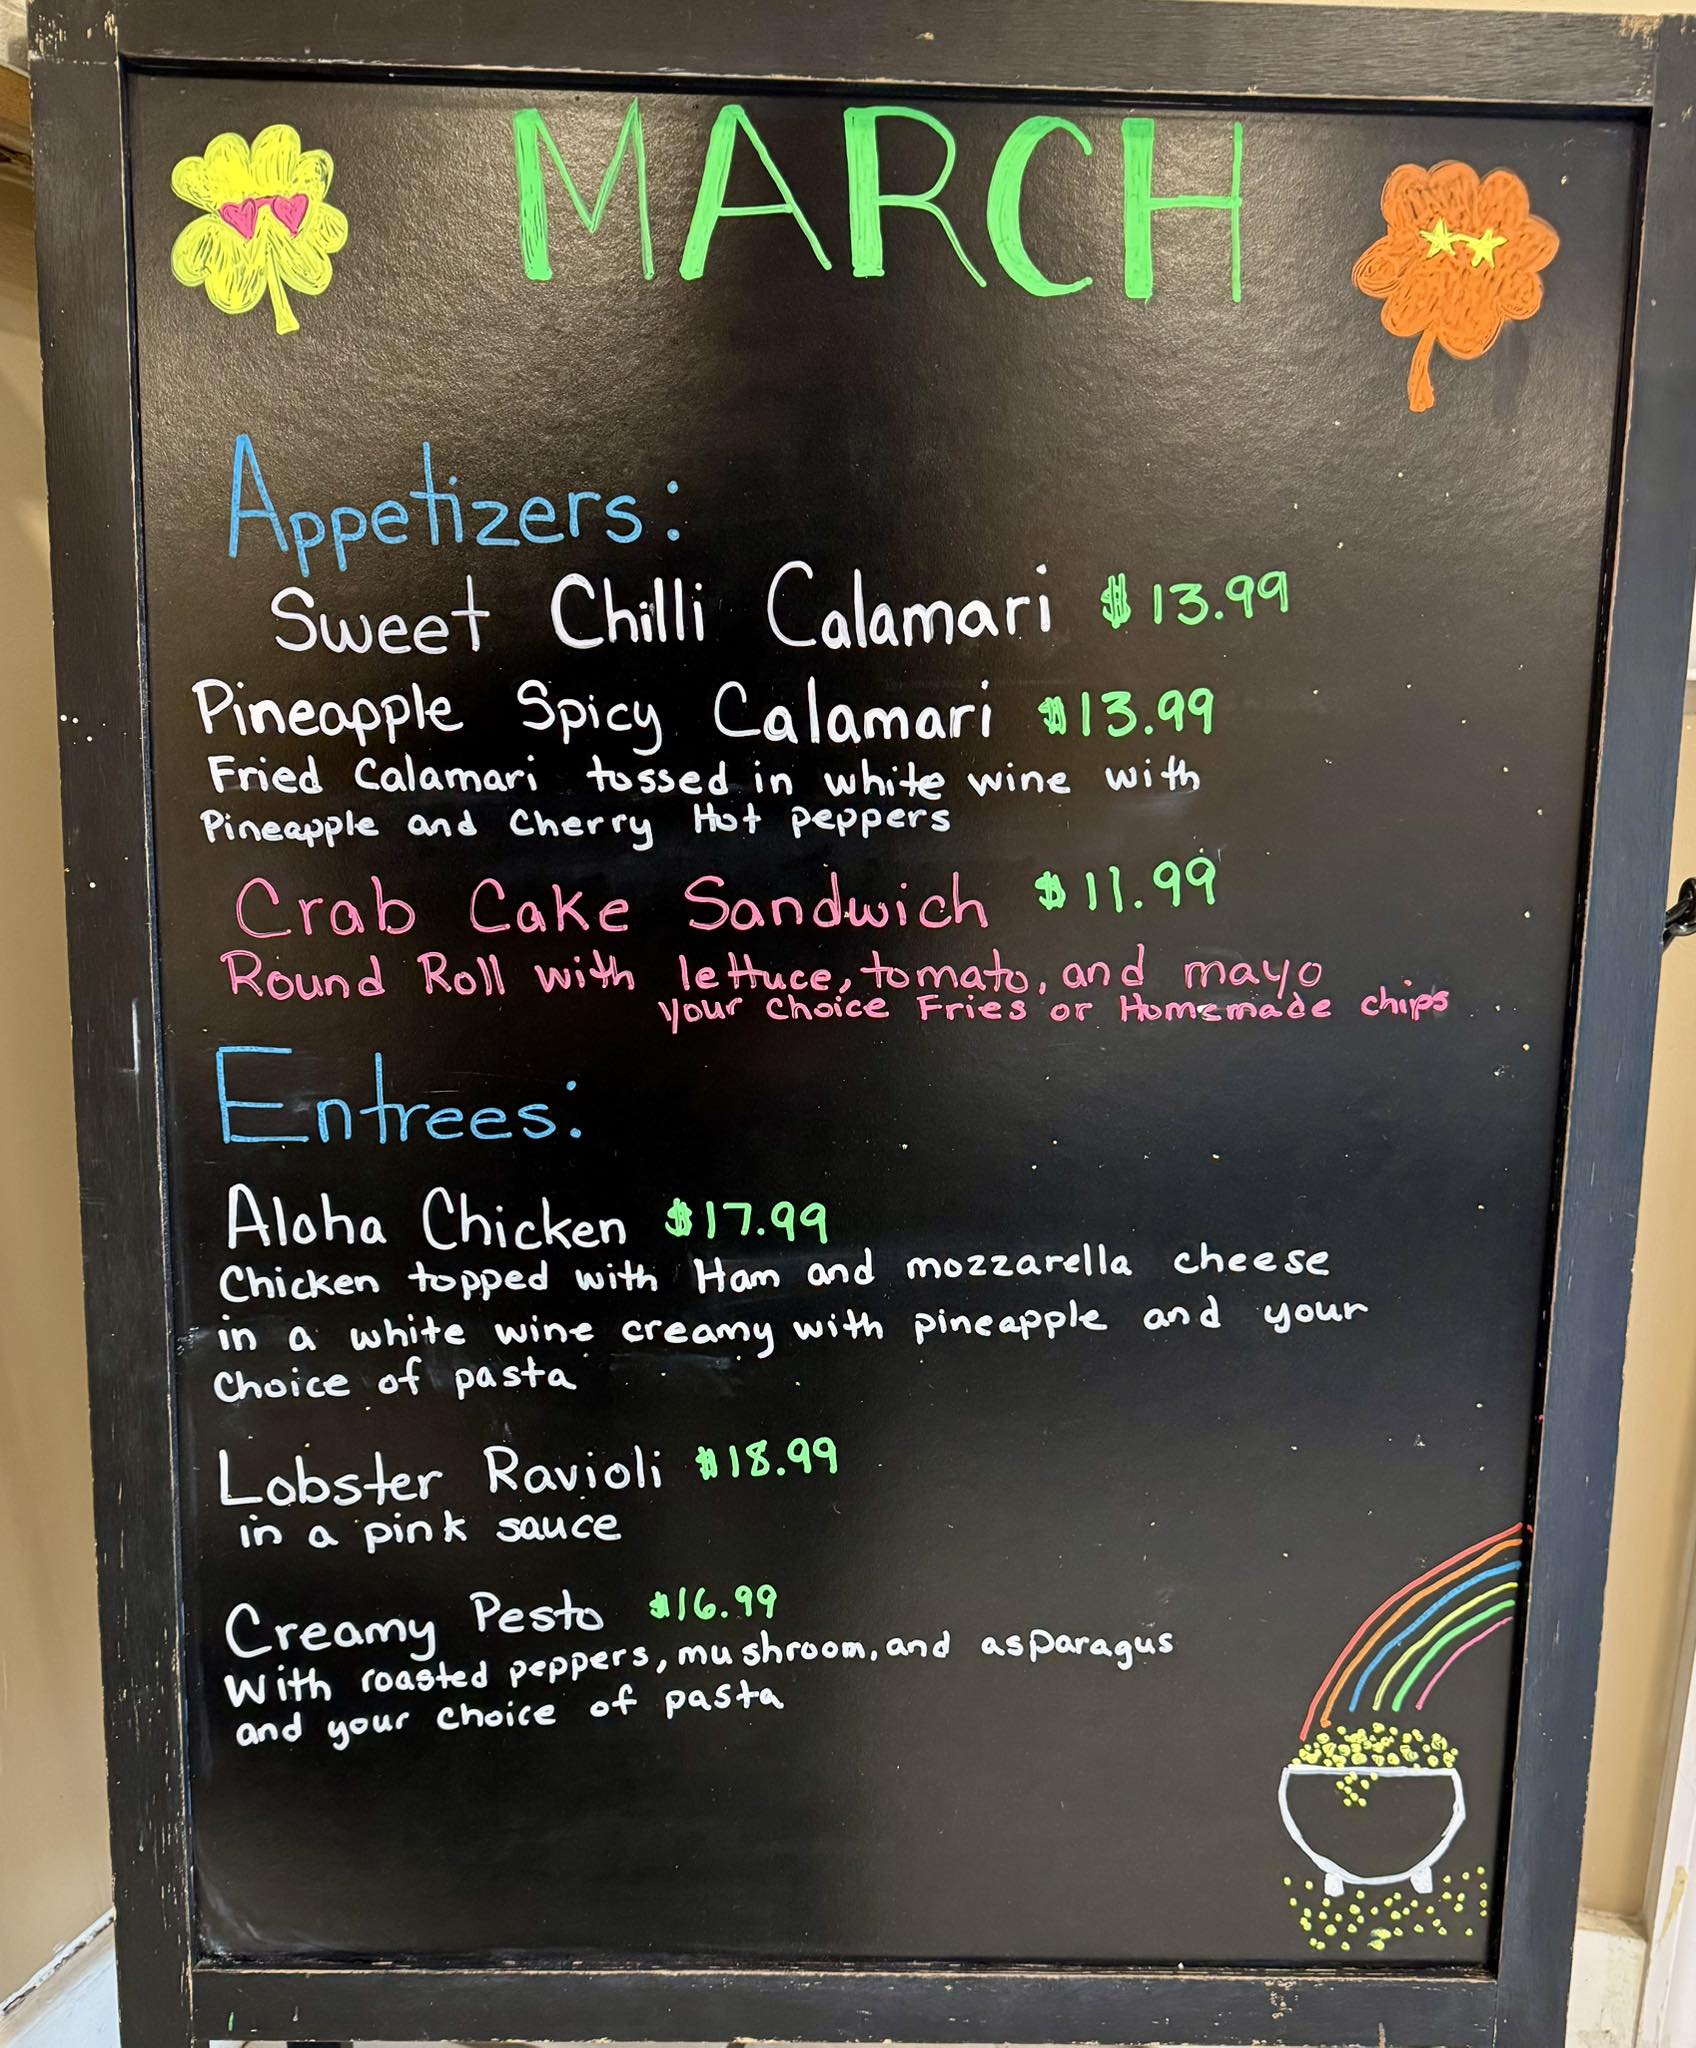 MARCH
Appetizers:
Sweet Chilli Calamari $13.99
Pineapple Spicy Calamari $13.99
Fried Calamari tossed in white wine with
Pineapple and Cherry Hot peppers
Crab Cake Sandwich $11.99
Round Roll with lettuce, tomato, and mayo
your choice Fries or Homemade chips
Entrees:
Aloha Chicken $17.99
Chicken topped with Ham and mozzarella cheese
in a white wine creamy with pineapple and your
choice of pasta
Lobster Ravioli $18.99
in a pink sauce
Creamy Pesto $16.99
With roasted peppers, mushroom, and asparagus
and your choice of pasta